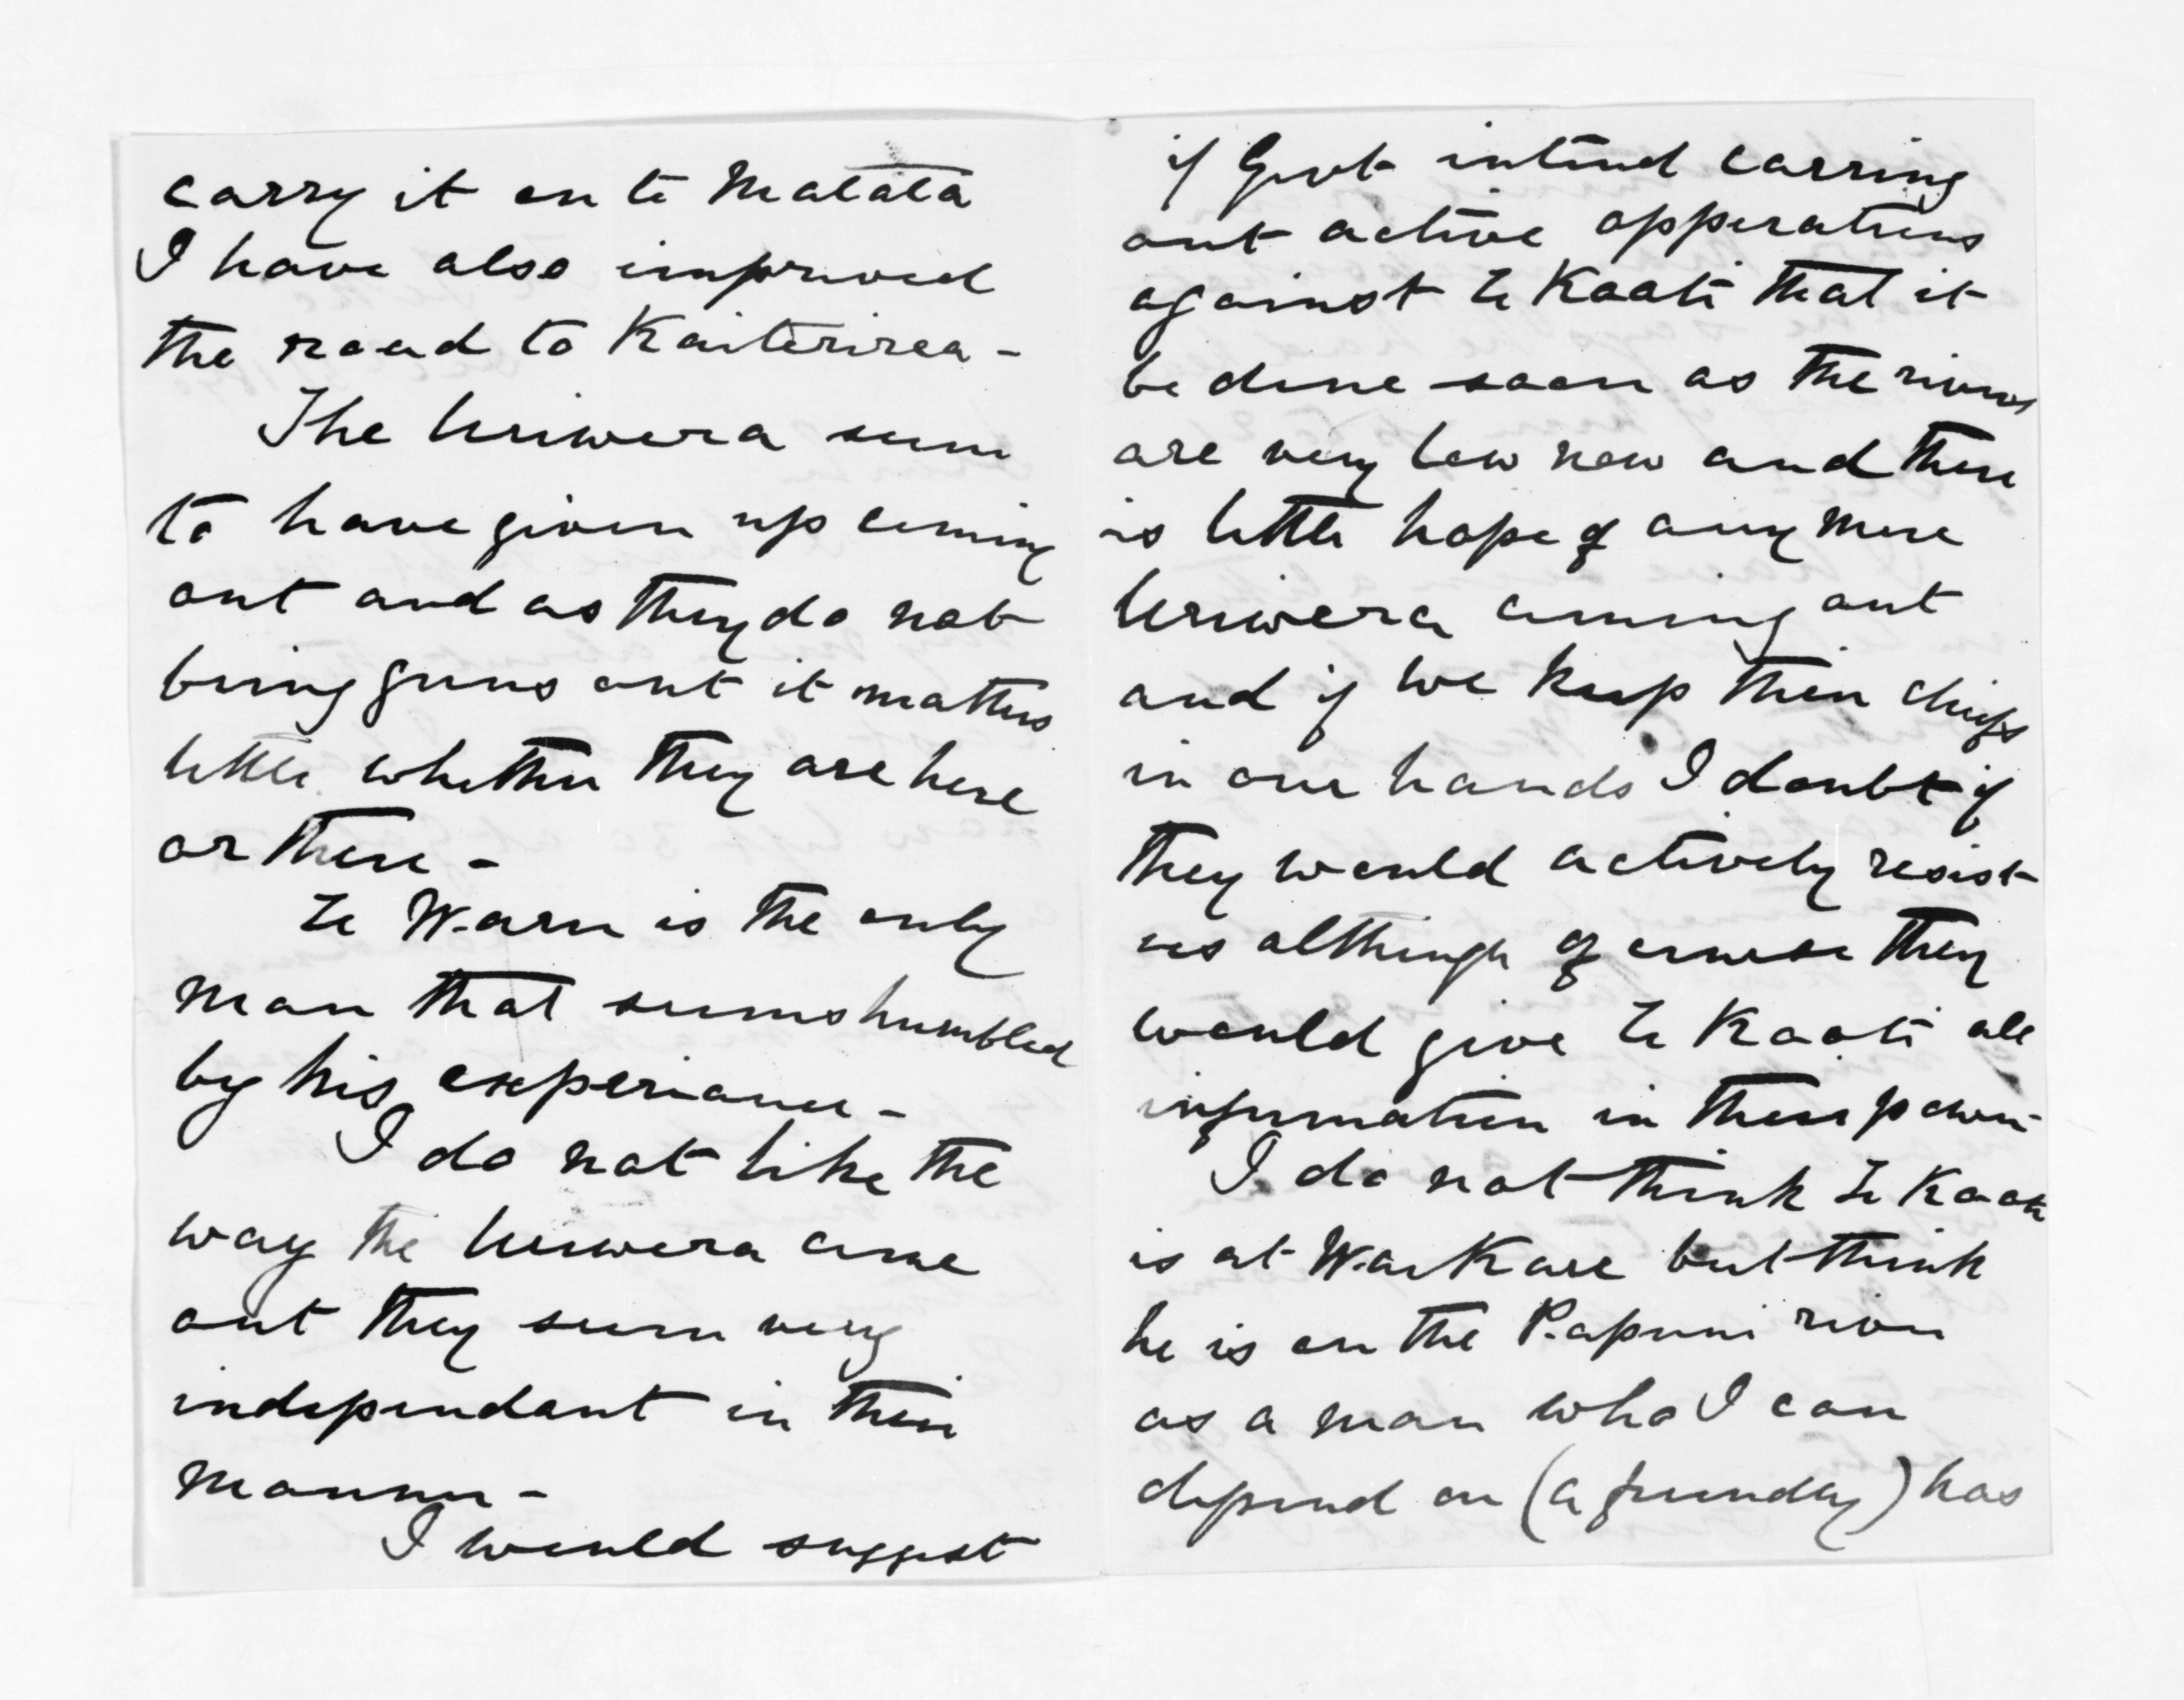 carry it on to Matata
I have also improved
the road to Kaiteririea -
The Uriwera seem
to have given up coming
out and as they do not
bring guns out it matters
little whether they are here
or there -
Te Waru is the only
man that seems humbled
by his experiance -
I do not like the
way the Uriwera come
out they seem very
independant in their
manner -
I would suggest
if Govt intend carring
out active opperations
against Te Kooti that it
be done soon as the rivers
are very low now and there
is little hope of any more
Uriwera coming out
and if we keep their chiefs
in our hands I doubt if
they would actively resist
us although of course they
would give Te Kooti all
information in their power
I do not think Te Kooti
is at WaiKare but think
he is on the Papuni river
as a man who I can
depend on (a friendly) has